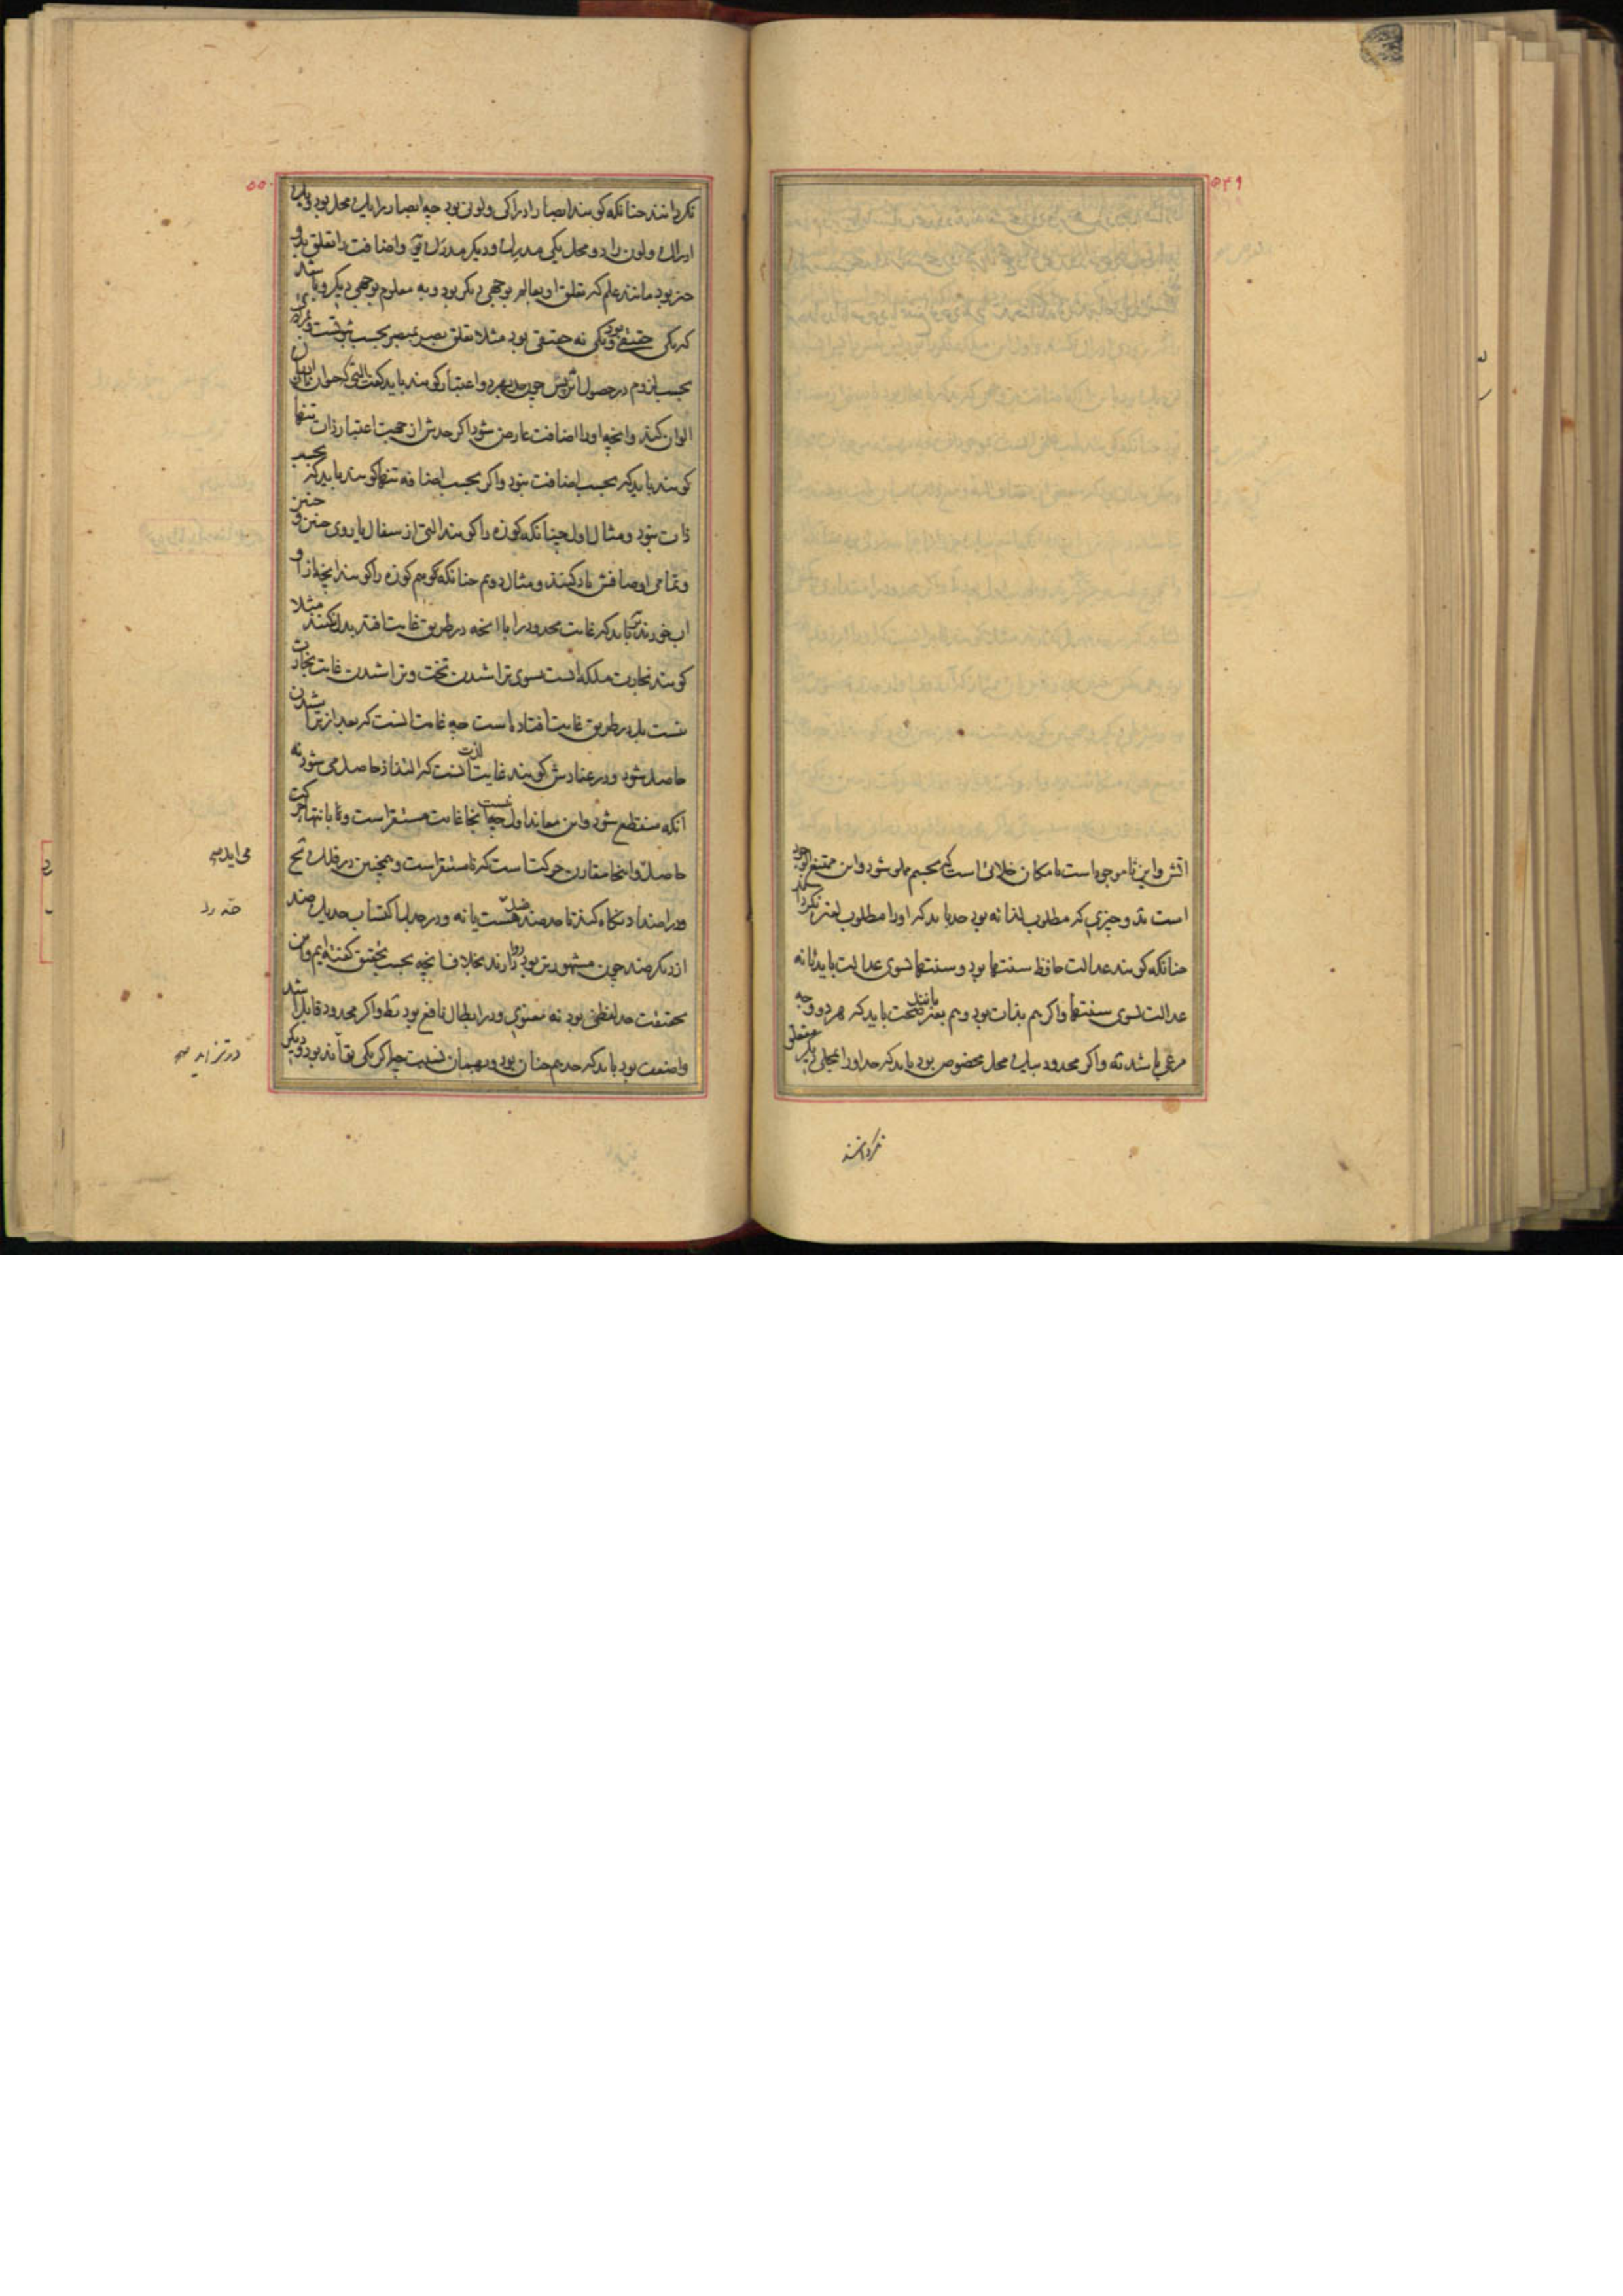 ۵۴۹
اتش و این ناموجود است با مکان خلائی است که بجسم مملو شود و این ممتنع الوجود
است ند و چیزی که مطلوب لذاته بود حد باید که او را مطلوب لغیره نکرداند
چنانکه کویند عدالت حافظ سنتها بود و سنتها سوی عدالت باید نه
عدالت سوی سنتها و اکر هم بذات بود و هم بغیر مانند صحت باید که هر دو وجه
مرعی باشد نه و اکر محدود بیک محل مخصوص بود باید که حد او را بمحلی دیکر متعلق
نکردانند
۵۵۰
نکردانند چنانکه کویند ابصار ادراکی و لونی بود چه ابصار را یک محل بود و یک
ادراک و لون را دو محل یکی مدرک و دیکر مدرک و اضافت را تعلق بدو
چیز بود مانند علم که تعلق او بعالم بوجهی دیکر بود و به معلوم بوجهی دیکر و باشد
که یکی حقیقی بود و یکی نه حقیقی بود مثلا تعلق بصر بمبصر بحسب
بحسب لزوم در حصول اثرش چون حد بهر دو اعتبار کویند باید کفت التی که حیوان بان ادراک
الوان کند و انچه او را اضافت عارض شود اکر حدش از جهت اعتبار ذات تنها
کویند باید که بحسب اضافت نبود و اکر بحسب اضافه تنها کویند باید که بحسب
ذات نبود و مثال اول چنانکه کوزه را کویند التی از سفال یا روی چنین و چنین
و تمامی اوصافش یاد کنند و مثال دوم چنانکه هم کوزه را کویند انچه از او
اب خورند و باید که غایت محدود را با انچه در طریق غایت افتد بدل نکنند مثلا
کویند نجارت ملکه است سوی تراشیدن تخت و تراشیدن غایت نجارت
نیست بل در طریق غایت افتاده است چه غایت انست که بعد از تراشیدن
حاصل شود و در عنادش کویند غایت لذت انست که التذاذ حاصل می شود نه
انکه منقطع شود و این معاند اول نیست چه انجا غایت مستقر است و با انتهاء حرکت
حاصل و اینجا مقارن حرکت است که نامستقر است و همچنین در فلک نح
و در اضداد نکاه کنند تا حد ضد ضد حد هست یا نه و در جدل اکتساب حد یک ضد
از دیکر ضد چون مشهورتر بود روا دارند بخلاف انچه بحسب تحقیق کفته ایم و این
بحقیقت حد لفظی بود نه معنوی و در ابطال نافع بود نط و اکر محدود قابل اشد
واضعف بود باید که حد هم چنان بود و بهمان نسبت چه اکر یکی بقا بود و دیکری
می اید صح
در تزاید صح